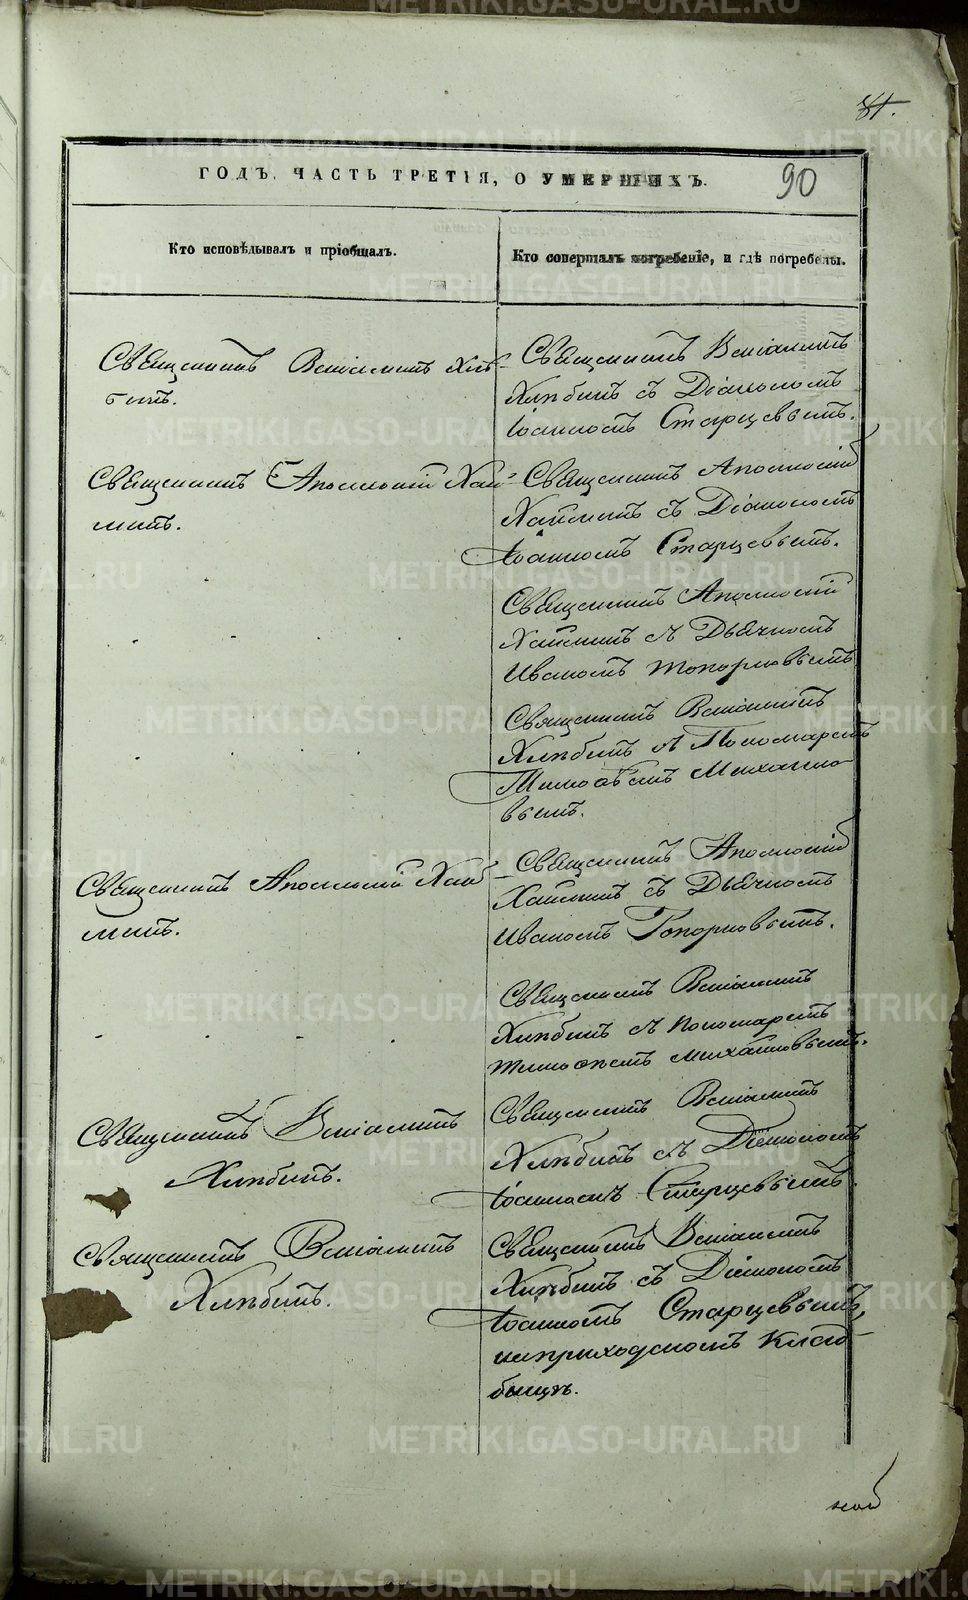 81.
ГОДЪ, ЧАСТЬ ТРЕТІЯ, О УМЕРШИХЪ.
90
Кто исповѣдывалъ и пріобщалъ.
Кто совершалъ погребеніе, и гдѣ погребены.
Священникъ Веніаминъ Хлѣ-
бинъ.
Священникъ Веніаминъ
Хлѣбинъ съ Діакономъ
Іоанномъ Старцевымъ.
Священникъ Аполлоній Хай-
минъ.
Священникъ Аполлоній
Хайминъ съ Діакономъ
Іоанномъ Старцевымъ.
Священникъ Аполлоній
Хайминъ съ Дьячкомъ
Иваномъ Топорковымъ
Священникъ Веніаминъ
Хлѣбинъ съ Пономаремъ
Тимофѣемъ Михайло-
вымъ.
Священникъ Аполлоній Хай-
минъ.
Священникъ Аполлоній
Хайминъ съ Дьячкомъ
Иваномъ Топорковымъ.
Священникъ Веніаминъ
Хлѣбинъ съ пономаремъ
Тимофеемъ Михайловымъ.
Священникъ Веніаминъ
Хлѣбинъ.
Священникъ Веніаминъ
Хлѣбинъ съ Діакономъ
Іоанномъ Старцевымъ.
Священникъ Веніаминъ
Хлѣбинъ.
Священникъ Веніаминъ
Хлѣбинъ съ Діакономъ
Іоанномъ Старцевымъ,
на приходскомъ клад-
бищѣ.
METRIKI.GASO-URAL.RU